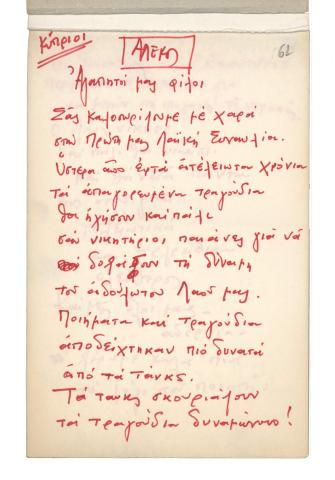 Κύπριοι
Αλέκος
61
Ἀγαπητοί μας φίλοι
Σᾶς καλοσωρίζουμε μέ χαρά
στήν Πρώτη μας Λαϊκή Συναυλία.
Ὕστερα ἀπό ἑφτά ἀτέλειωτα χρόνια
τά ἀπαγορευμένα τραγούδια
θά ἠχήσουν καί πάλι
σάν νικητήριοι παιάνες γιά νά
δοξάσουν τή δύναμη
τοῦ ἀδούλωτου Λαοῦ μας.
Ποιήματα καί τραγούδια
ἀποδείχτηκαν πιό δυνατά
ἀπό τά τάνκς.
Τά τανκς σκουριάζουν
τά τραγούδια δυναμώνουν!